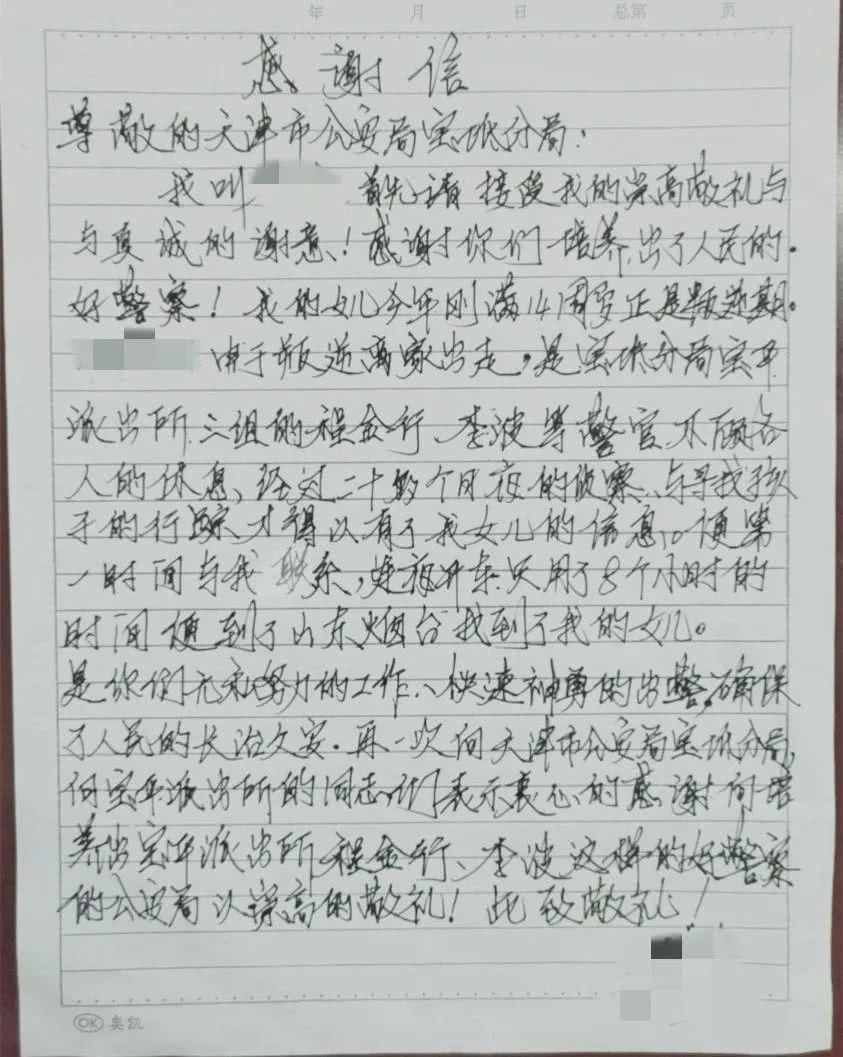 年 月 日 总第 页
感谢信
尊敬的天津市公安局宝坻分局：
我叫 首先请接受我的崇高敬礼与
与真诚的谢意！感谢你们培养出了人民的
好警察！我的女儿今年刚满14周岁正是叛逆期。
由于叛逆离家出走，是宝坻分局宝平
派出所三组的程金行、李波等警官不顾各
人的休息、经过二十多个日夜的侦察、与寻找孩
子的行踪才得以有了我女儿的信息。便第
一时间与我联系，连夜冲车只用了8个小时的
时间便到了山东烟台找到了我的女儿。
是你们无私努力的工作、快速神勇的出警，确保
了人民的长治久安．再一次向天津市公安局宝坻分局，
向宝平派出所的同志们表示衷心的感谢向培
养出宝平派出所程金行、李波这样的好警察
的公安局以崇高的敬礼！此致敬礼！
OK 奥凯